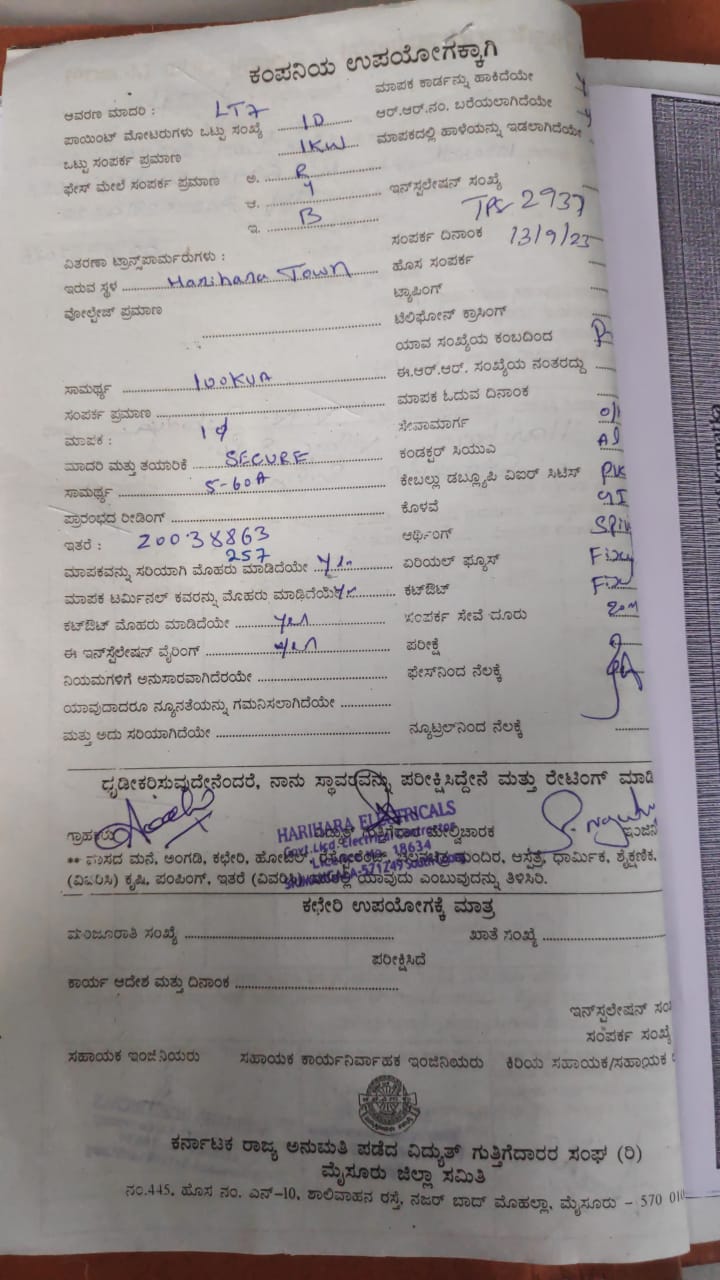 ಕಂಪನಿಯ ಉಪಯೋಗಕ್ಕಾಗಿ
ಆವರಣ ಮಾದರಿ : LT7
ಮಾಪಕ ಕಾರ್ಡನ್ನು ಹಾಕಿದೆಯೇ
ಪಾಯಿಂಟ್ ಮೋಟರುಗಳು ಒಟ್ಟು ಸಂಖ್ಯೆ
ಆರ್.ಆರ್.ನಂ. ಬರೆಯಲಾಗಿದೆಯೇ
ಒಟ್ಟು ಸಂಪರ್ಕ ಪ್ರಮಾಣ 1KW
ಮಾಪಕದಲ್ಲಿ ಹಾಳೆಯನ್ನು ಇಡಲಾಗಿದೆಯೇ
ಫೇಸ್ ಮೇಲೆ ಸಂಪರ್ಕ ಪ್ರಮಾಣ ಅ. R
ಆ. Y
ಇ. B
ಇನ್‌ಸ್ಟಲೇಷನ್ ಸಂಖ್ಯೆ
2937
ಸಂಪರ್ಕ ದಿನಾಂಕ 13/9/23
ವಿತರಣಾ ಟ್ರಾನ್ಸ್‌ಪಾರ್ಮರುಗಳು :
ಹೊಸ ಸಂಪರ್ಕ
ಇರುವ ಸ್ಥಳ Harihara Town
ಟ್ಯಾಪಿಂಗ್
ವೋಲ್ಟೇಜ್ ಪ್ರಮಾಣ
ಟೆಲಿಫೋನ್ ಕ್ರಾಸಿಂಗ್
ಯಾವ ಸಂಖ್ಯೆಯ ಕಂಬದಿಂದ
ಸಾಮರ್ಥ್ಯ 100KVA
ಈ.ಆರ್.ಆರ್. ಸಂಖ್ಯೆಯ ನಂತರದ್ದು
ಸಂಪರ್ಕ ಪ್ರಮಾಣ
ಮಾಪಕ ಓದುವ ದಿನಾಂಕ
ಮಾಪಕ : 1φ
ಸೇವಾಮಾರ್ಗ
ಮಾದರಿ ಮತ್ತು ತಯಾರಿಕೆ SECURE
ಕಂಡಕ್ಟರ್ ಸಿಯುಎ Al
ಸಾಮರ್ಥ್ಯ 5-60A
ಕೇಬಲ್ಲು ಡಬ್ಲ್ಯೂಪಿ ವಿಐರ್ ಸಿಟಿಸ್
ಪ್ರಾರಂಭದ ರೀಡಿಂಗ್
ಕೊಳವೆ GI
ಇತರೆ : 20038863
257
ಆರ್ಥಿಂಗ್
ಮಾಪಕವನ್ನು ಸರಿಯಾಗಿ ಮೊಹರು ಮಾಡಿದೆಯೇ Yes
ಏರಿಯಲ್ ಫ್ಯೂಸ್
ಮಾಪಕ ಟರ್ಮಿನಲ್ ಕವರನ್ನು ಮೊಹರು ಮಾಡಿದೆಯೆ
ಕಟ್‌ಔಟ್
ಕಟ್‌ಔಟ್ ಮೊಹರು ಮಾಡಿದೆಯೇ Yes
ಸಂಪರ್ಕ ಸೇವೆ ದೂರು 20M
ಈ ಇನ್‌ಸ್ಟೆಲೇಷನ್ ವೈರಿಂಗ್ Yes
ಪರೀಕ್ಷೆ
ನಿಯಮಗಳಿಗೆ ಅನುಸಾರವಾಗಿದೆರಯೇ
ಫೇಸ್‌ನಿಂದ ನೆಲಕ್ಕೆ
ಯಾವುದಾದರೂ ನ್ಯೂನತೆಯನ್ನು ಗಮನಿಸಲಾಗಿದೆಯೇ
ಮತ್ತು ಅದು ಸರಿಯಾಗಿದೆಯೇ
ನ್ಯೂಟ್ರಲ್‌ನಿಂದ ನೆಲಕ್ಕೆ
ಧೃಡೀಕರಿಸುವುದೇನೆಂದರೆ, ನಾನು ಸ್ಥಾವರವನ್ನು ಪರೀಕ್ಷಿಸಿದ್ದೇನೆ ಮತ್ತು ರೇಟಿಂಗ್ ಮಾಡಿ
HARIHARA ELECTRICALS
Govt. Licd. Electrical Contractor
Licence No. 18634
ಮೇಲ್ವಿಚಾರಕ
** ವಾಸದ ಮನೆ, ಅಂಗಡಿ, ಕಛೇರಿ, ಹೋಟೆಲ್, ಆಸ್ಪತ್ರೆ, ಧಾರ್ಮಿಕ, ಶೈಕ್ಷಣಿಕ,
(ವಿವರಿಸಿ) ಕೃಷಿ, ಪಂಪಿಂಗ್, ಇತರೆ (ವಿವರಿಸಿ) ಯಾವುದು ಎಂಬುವುದನ್ನು ತಿಳಿಸಿರಿ.
ಕಛೇರಿ ಉಪಯೋಗಕ್ಕೆ ಮಾತ್ರ
ಮಂಜೂರಾತಿ ಸಂಖ್ಯೆ
ಖಾತೆ ಸಂಖ್ಯೆ
ಪರೀಕ್ಷಿಸಿದೆ
ಕಾರ್ಯ ಆದೇಶ ಮತ್ತು ದಿನಾಂಕ
ಇನ್‌ಸ್ಟಲೇಷನ್
ಸಂಪರ್ಕ ಸಂಖ್ಯೆ
ಸಹಾಯಕ ಇಂಜಿನಿಯರು ಸಹಾಯಕ ಕಾರ್ಯನಿರ್ವಾಹಕ ಇಂಜಿನಿಯರು ಕಿರಿಯ ಸಹಾಯಕ/ಸಹಾಯಕ
ಕರ್ನಾಟಕ ರಾಜ್ಯ ಅನುಮತಿ ಪಡೆದ ವಿದ್ಯುತ್ ಗುತ್ತಿಗೆದಾರರ ಸಂಘ (ರಿ)
ಮೈಸೂರು ಜಿಲ್ಲಾ ಸಮಿತಿ
ನಂ.445, ಹೊಸ ನಂ. ಎನ್-10, ಶಾಲಿವಾಹನ ರಸ್ತೆ, ನಜರ್ ಬಾದ್ ಮೊಹಲ್ಲಾ, ಮೈಸೂರು - 570 010